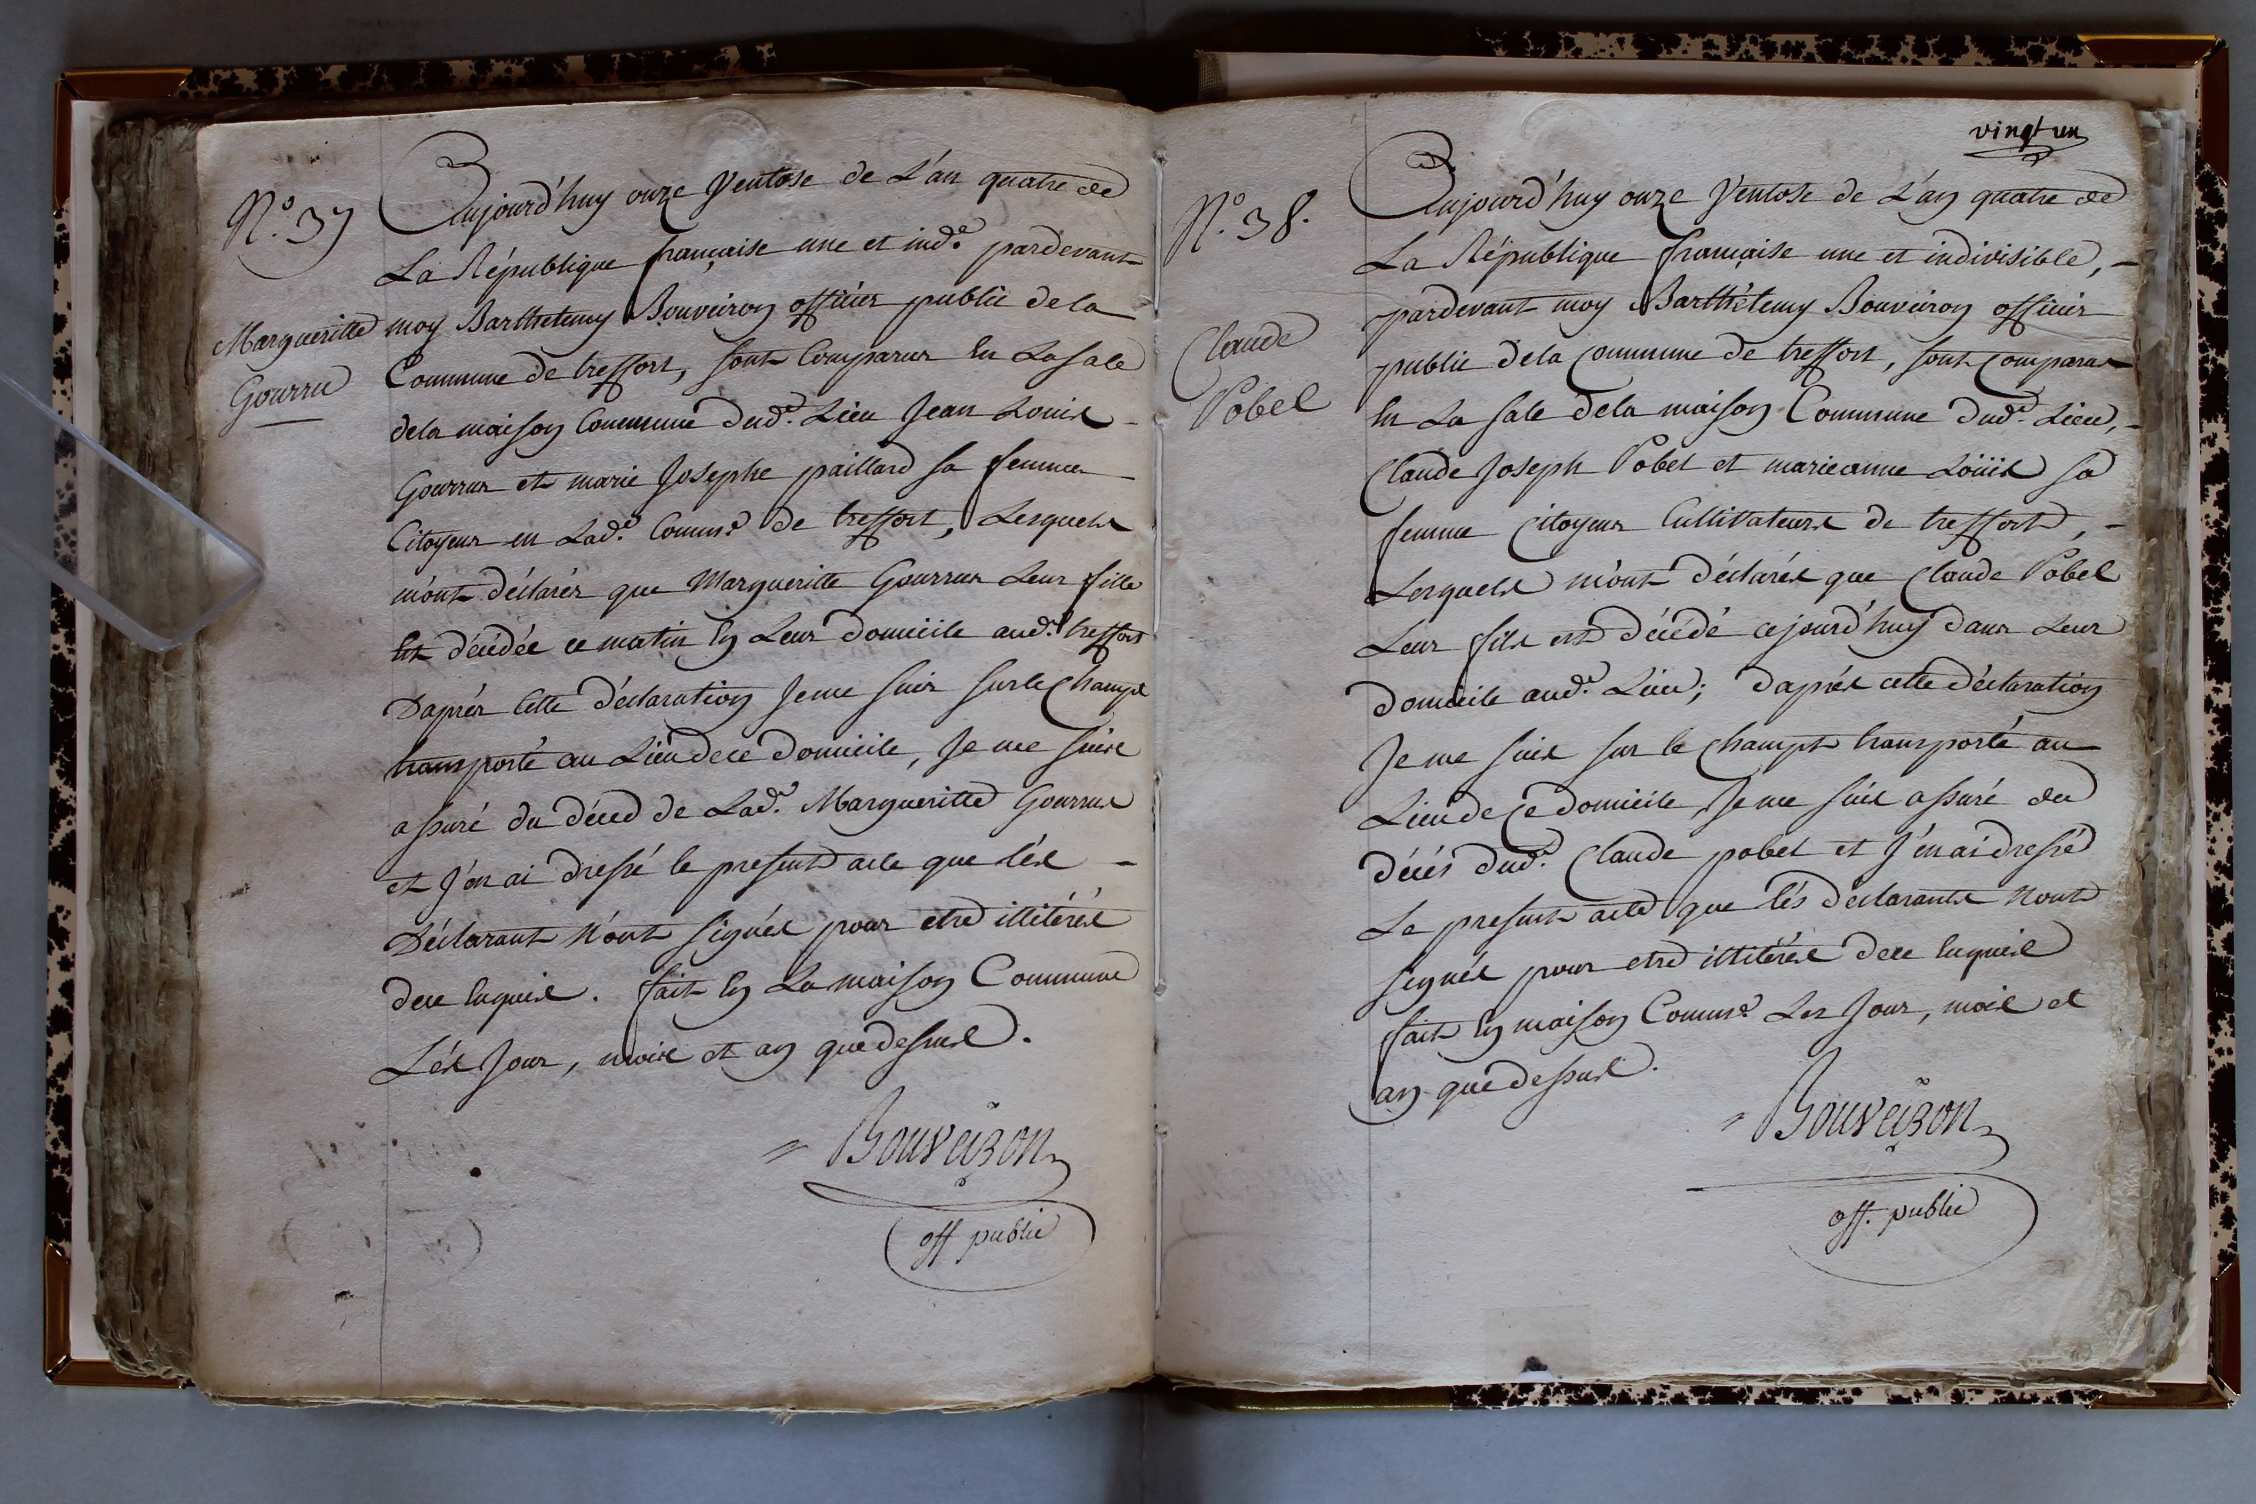 N.° 37
Margueritte
Gourru
Aujourd'huy onze Ventose de L'an quatre de
La République française une et ind.e pardevant
moy Barthelemy Bouveiron officier public de la
Commune de treffort, sont Comparus En La sale
de la maison Commune dud.t Lieu Jean Louis
Gourrus et marie Josephe paillard sa femme
Citoyens en Lad.e Comm.e de treffort, Lesquels
m'ont déclarés que Margueritte Gourrus Leur fille
Est décédée ce matin En Leur domicile aud.t treffort
D'aprés Cette déclaration Je me suis sur le Champs
transporté au Lieu de ce domicile, Je me suis
assuré du déced de Lad.e Margueritte Gourrus
et J'en ai dressé le present acte que lés
Déclarant N'ont signés pour etre illitérés
de ce Enquis. fait En La maison Commune
Lés Jour, mois et an que dessus.
Bouveiron
off public
vingt un
N.° 38.
Claude
Pobel
Aujourd'huy onze Ventose de L'an quatre de
La République française une et indivisible,
pardevant moy Barthélemy Bouveiron officier
public de la Commune de treffort, sont Comparus
En La sale de la maison Commune dud.t Lieu,
Claude Joseph Pobel et marieanne Loüis sa
femme Citoyens Cultivateurs de treffort,
Lesquels m'ont déclarés que Claude Pobel
Leur fils est décédé cejourd'huy dans Leur
domicile aud.t Lieu; d'aprés cette déclaration
Je me suis sur le Champs transporté au
Lieu de Ce domicile, Je me suis assuré du
décés dud.t Claude pobel et J'en ai dressé
Le present acte que lés déclarants N'ont
signés pour etre illitérés de ce Enquis
fait En maison Comm.e Les Jour, mois et
an que dessus.
Bouveiron
off. public